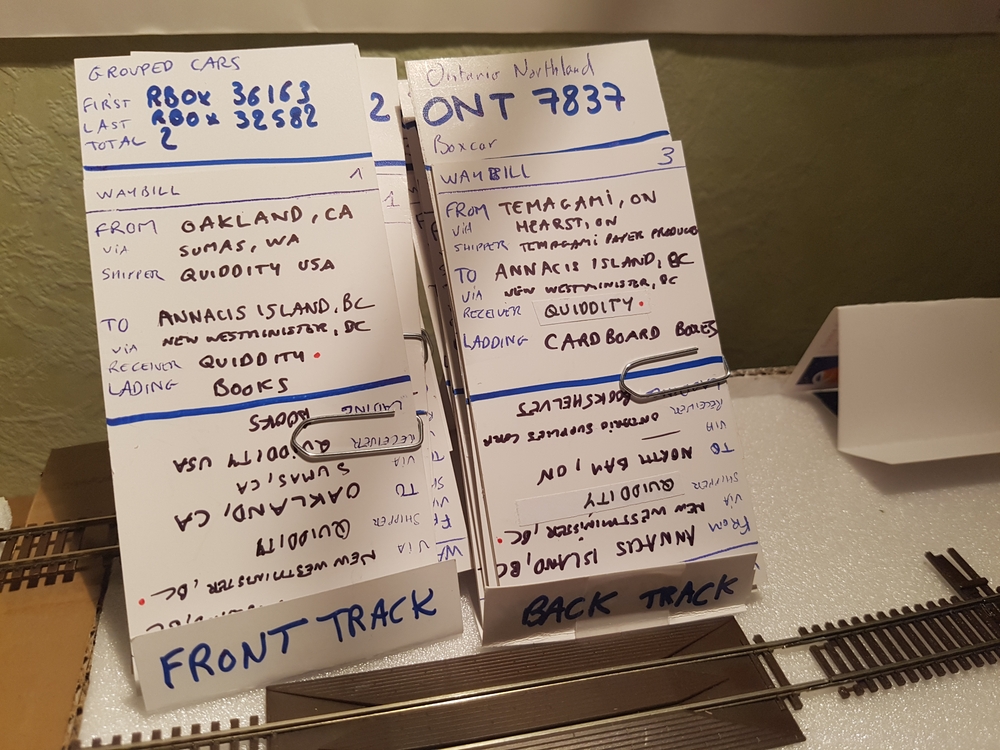 GROUPED CARS
FIRST RBOX 36163
LAST RBOX 32582
TOTAL 2
WAYBILL 1
FROM OAKLAND, CA
VIA SUMAS, WA
SHIPPER QUIDDITY USA
TO ANNACIS ISLAND, BC
VIA NEW WESTMINISTER, BC
RECEIVER QUIDDITY
LADING BOOKS
LADING BOOKS
RECEIVER QUIDDITY USA
VIA SUMAS, CA
TO OAKLAND, CA
SHIPPER QUIDDITY
VIA NEW WESTMINSTER, BC
FRONT TRACK
2
1
Ontario Northland
ONT 7837
Boxcar
WAYBILL 3
FROM TEMAGAMI, ON
VIA HEARST, ON
SHIPPER TEMAGAMI PAPER PRODUCE
TO ANNACIS ISLAND, BC
VIA NEW WESTMINISTER, BC
RECEIVER QUIDDITY
LADDING CARDBOARD BOXES
BOOKSHELVES
RECEIVER ONTARIO SUPPLIES CORP
VIA
TO NORTH BAY, ON
SHIPPER QUIDDITY
VIA NEW WESTMINISTER, BC
FROM ANNACIS ISLAND, BC
BACK TRACK